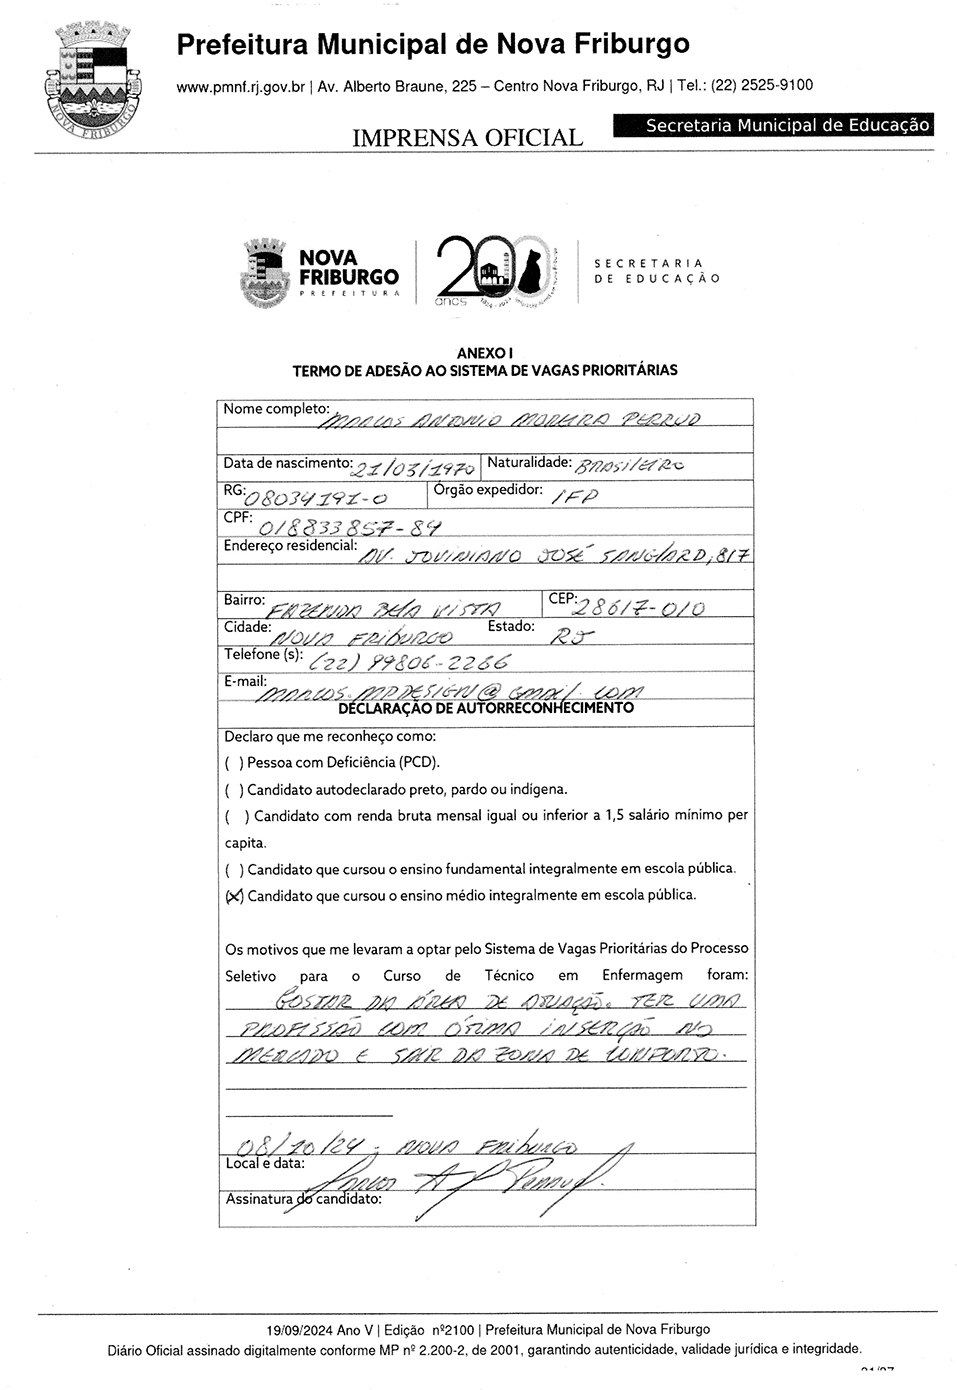 Prefeitura Municipal de Nova Friburgo
www.pmnf.rj.gov.br | Av. Alberto Braune, 225 – Centro Nova Friburgo, RJ | Tel.: (22) 2525-9100
IMPRENSA OFICIAL
Secretaria Municipal de Educação
NOVA FRIBURGO
NOVA
FRIBURGO
PREFEITURA
200
anos
SECRETARIA
DE EDUCAÇÃO
ANEXO I
TERMO DE ADESÃO AO SISTEMA DE VAGAS PRIORITÁRIAS
Nome completo: MARCOS ANTONIO MOREIRA PERRUD
Data de nascimento: 21/03/1970 Naturalidade: BRASILEIRO
RG: 08034191-0 Órgão expedidor: IFP
CPF: 018833857-89
Endereço residencial: AV. JOVINIANO JOSÉ SANGLARD, 817
Bairro: FAZENDA BELA VISTA CEP: 28617-010
Cidade: NOVA FRIBURGO Estado: RJ
Telefone (s): (22) 99806-2266
E-mail: MARCOS.MPDESIGN@GMAIL.COM
DECLARAÇÃO DE AUTORRECONHECIMENTO
Declaro que me reconheço como:
( ) Pessoa com Deficiência (PCD).
( ) Candidato autodeclarado preto, pardo ou indígena.
( ) Candidato com renda bruta mensal igual ou inferior a 1,5 salário mínimo per
capita.
( ) Candidato que cursou o ensino fundamental integralmente em escola pública.
(X) Candidato que cursou o ensino médio integralmente em escola pública.
Os motivos que me levaram a optar pelo Sistema de Vagas Prioritárias do Processo
Seletivo para o Curso de Técnico em Enfermagem foram:
GOSTAR DA ÁREA DE ATUAÇÃO. TER UMA
PROFISSÃO COM ÓTIMA INSERÇÃO NO
MERCADO E SAIR DA ZONA DE CONFORTO.
08/10/24, NOVA FRIBURGO
Local e data:
Assinatura do candidato:
19/09/2024 Ano V | Edição nº2100 | Prefeitura Municipal de Nova Friburgo
Diário Oficial assinado digitalmente conforme MP nº 2.200-2, de 2001, garantindo autenticidade, validade jurídica e integridade.